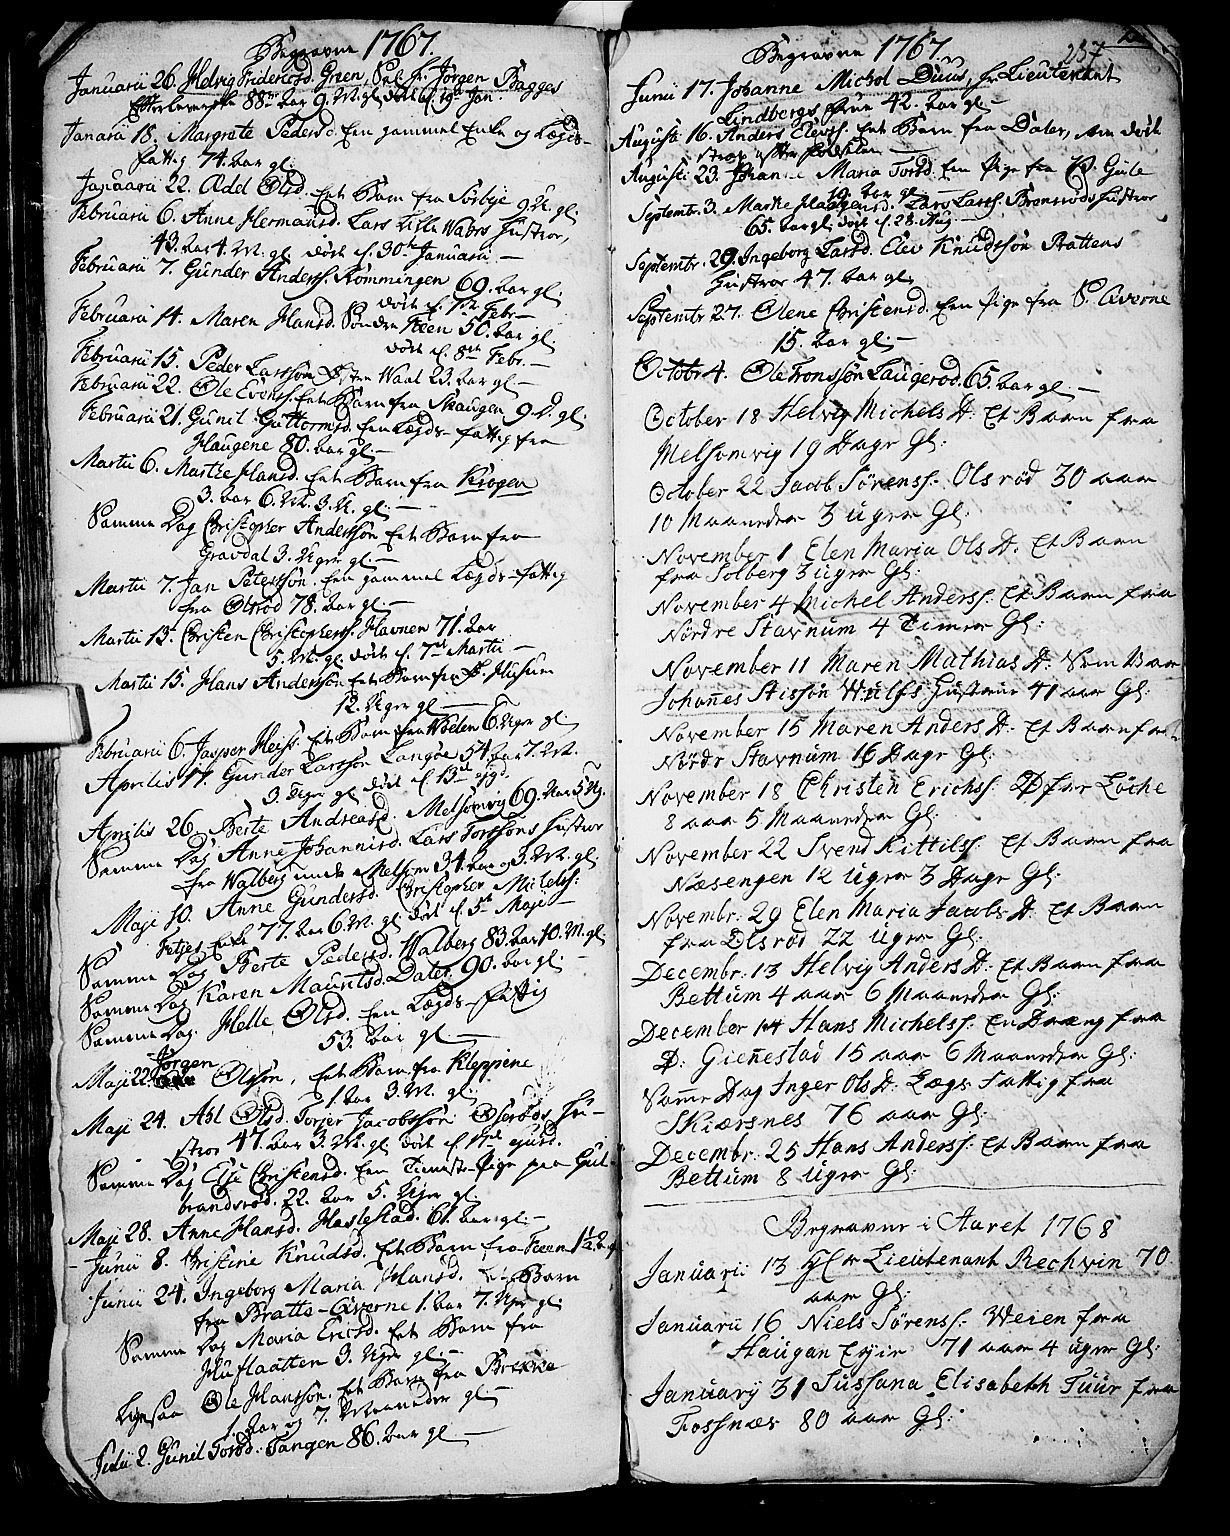 Begravne 1767.
Januarii 26. Helvig Friderichsd. Green, Sal. Hr. Jörgen Bagges
Efterleverske 88 aar 9. M. gl. död d. 19 Jan.
Januarii 18. Margrete Pedersd. Een gammel Enke og Lægds-
fattig 74. aar gl.
Januarii 22. Olsd. Eet Barn fra Sörbye 9 U. gl.
Februarii 6. Anne Hermansd. Lars Lille Hustroe,
43. aar 4. M. gl. död d. 30te Januarii. —
Februarii 7. Gunder Anderss. Römmingen 69. aar gl.
död d. Febr. —
Februarii 14. Maren Hansd. Sönden Feen 50. aar gl.
död d. 8de Febr. —
Februarii 15. Peder Larssön Östen Waal 23. aar gl. —
Februarii 22. Ole Everss. Eet Barn fra Skaugen 9 D. gl.
Februarii 21. Gunil Guttormsd. Een Lægds-fattig fra
Haugene 80. aar gl. —
Martii 6. Marthe Hansd. Eet Barn fra Krogen
3. aar 6. M. 3. U. gl. —
Samme Dag Christopher Anderssön Eet Barn fra
Gravdal 3. Uger gl. —
Martii 7. Jan Peterssön. Een gammel Lægds-fattig
fra Olsröd 78. aar gl. —
Martii 13. Christen Christopherss. Havnen 71. aar
5. M. gl. död d. 7de Martii —
Martii 15. Hans Anderssön Eet Barn fra Husum
12. Uger gl. —
Februarii 6. Jasper Heiss. Eet Barn fra Wölen 6. Uger gl.
Aprilis 17. Gunder Larssön Langöe 54 aar 7. M.
3. Uger gl. död d. 13de ejusd.
Aprilis 26. Berte Andreasd. Melsomvig 69. Aar 5 M.
Samme Dag Anne Johannisd. Lars Torssöns Hustroe
fra Walberg unde Melsom 34. aar og 3. M. gl.
Maji 10. Anne Gundersd. Christopher
Enke 77. aar 6. M. gl. död d. 5te Maji —
Samme Dag Berte Pedersd. Walberg 83. aar 10. M. gl.
Samme Dag Karen Mauritsd. Dalen 90. aar gl. —
Samme Dag Helle Olsd. Een Lægds-fattig
53. aar gl. —
Jörgen
Maji 22. Olssön, Eet Barn fra Kleppene
1. aar 3. M. gl.
Maji 24. Olsd. Torjer Jacobssön Oseröds Hu-
stroe 47. aar 3. M. gl. död d. 17de ejusd.
Samme Dag Else Christensd. Een Tieneste-Pige paa Gul-
brandsröd. 22. aar 5. Uger gl.
Maji 28. Anne Hansd. Haslestad. 61. aar gl. —
Junii 8. Christine Knudsd. Eet Barn fra Feen 1½ aar
Junii 24. Ingeborg Maria Hansd. Eet Barn
fra Bratte-Averne 1. aar 7. Uger gl.
Samme Dag Maria Ericsd. Eet Barn fra
Husslaatten 3. Uger gl. —
Ligesaa Ole Hanssön. Eet Barn fra Brekke
1. aar og 7. Maaneder gl. —
Julii 2. Gunil Torsd. Tangen 86. aar gl. —
257
Begravne 1767
Junii 17. Johanne Michel Duus, Hr. Lieutenant
Lindbergs Frue 42. aar gl. —
Augusti 16. Anders Elevss. Eet Barn fra Dalen, som döde
strax efter födselen —
Augusti 23. Johanne Maria Torsd. Een Pige fra
aar gl. —
Septembr. 3. Marthe Haagensd. Lars Larss. Brönsröds Hustroe
65. aar gl. död d. 28. Aug. —
Septembr. 20. Ingeborg Larsd. Elev Knudssön Brattens
Hustroe 47. aar gl.
Septembr 27. Olene Christensd. Een Pige fra S. Averne
15. aar gl. —
Octobr 4. Ole Tronssön Laugeröd 65. aar gl. —
October 18 Helvig Michels D. Et Barn fra
Melsomvig 19 Dage Gl:
October 22 Jacob Sörenss: Olsröd 30 aar
10 Maaneder 3 Uger Gl:
November 1 Elen Maria Ols D. Et Barn
fra Solberg 3 uger Gl:
November 4 Michel Anderss: Et Barn fra
Nördre Stavnum 4 Timer Gl:
November 11 Maren Mathias D.
Johannes Stissön Wulfs Hustrue 41 aar Gl:
November 15 Maren Anders D. Et Barn fra
Nördr Stavnum 16 Dage Gl:
November 18 Christen Erichss: Löche
8 aar 5 Maaneder Gl:
November 22 Svend Kittilss: Et Barn fra
Næsengen 12 Uger 3 Dage Gl:
Novembr: 29 Elen Maria Jacobs D: Et Barn
fra Olsröd 22 Uger Gl:
Decembr: 13 Helvig Anders D: Et Barn fra
Bettum 4 aar 6 Maaneder Gl:
December 14 Hans Michelss: En Dreng fra
D: Gienestad 15 aar 6 Maaneder Gl:
Same Dag Inger Ols D: Lægs Fattig fra
Skiærsnes 76 aar Gl:
Decembr: 25 Hans Anderss: Et Barn fra
Bettum 8 Uger Gl:
Begravne i Aaret 1768
Januarii 13 Hr Lieutenant Rechwin 70
aar Gl:
Januarii 16 Niels Sörenss: Weien fra
Haugan 71 aar 4 uger Gl:
Januarij 31 Sussana Elisabeth Tuur fra
Fossnæs 80 aar Gl: